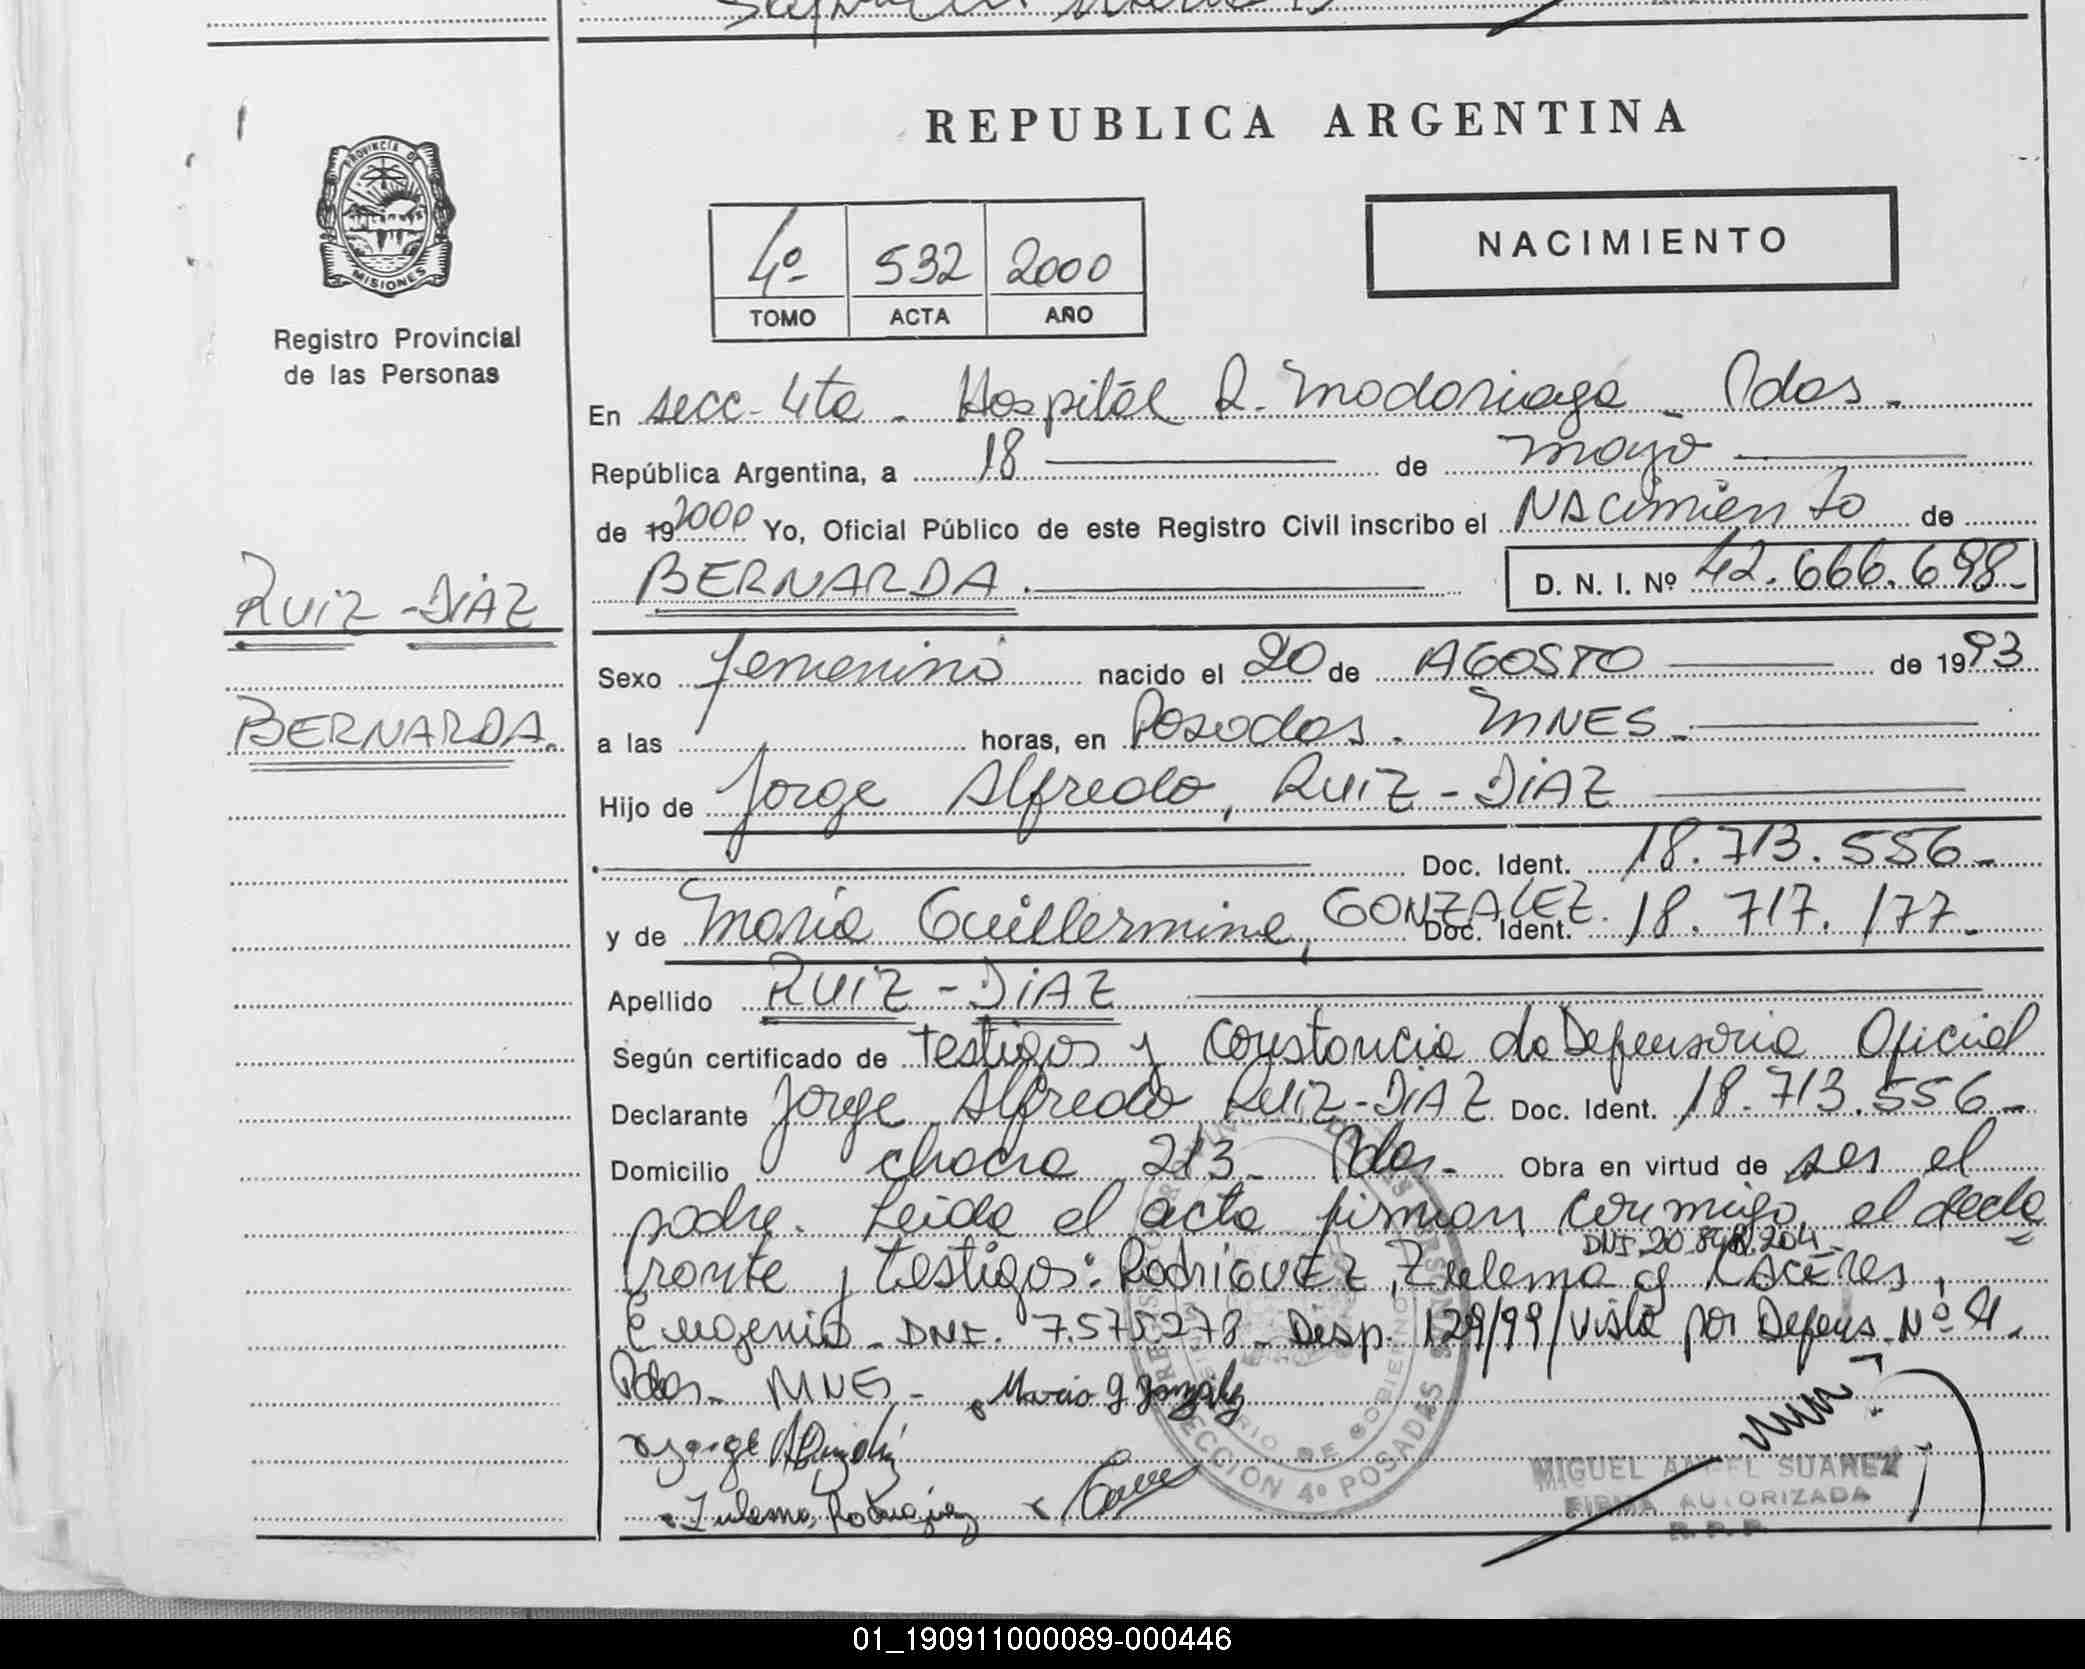 REPUBLICA ARGENTINA
PROVINCIA DE
MISIONES
Registro Provincial
de las Personas
4º 532 2000
TOMO ACTA AÑO
NACIMIENTO
En secc- 4ta - Hospital R. Madariaga - Pdas.-
República Argentina, a 18 de mayo
de 19 2000 Yo, Oficial Público de este Registro Civil inscribo el NACimiento de
BERNARDA. D. N. I. Nº 42.666.698-
RUIZ-DIAZ
BERNARDA.
Sexo femenino nacido el 20 de AGOSTO de 1993
a las horas, en Posadas. MNES.-
Hijo de Jorge Alfredo, RUIZ-DIAZ
Doc. Ident. 18.713.556-
y de Maria Guillermina, GONZALEZ. Doc. Ident. 18.717.177-
Apellido RUIZ-DIAZ
Según certificado de testigos y constancia de Defensoria Oficial
Declarante Jorge Alfredo RUIZ-DIAZ Doc. Ident. 18.713.556-
Domicilio chacra 213- Pdas.- Obra en virtud de ser el
padre. Leida el acta firman conmigo, el decla
DNI.20.848.204-
rante y testigos: RodriGUEZ, Zulema y CACeres,
Eugenio- DNI. 7.575.278- Desp. 129/99/Visto por Defens. Nº 4.
Pdas- MNES- Maria G Gonzalez
Jorge
Zulema Rodriguez
SECCION 4º POSADAS
MINISTERIO DE GOBIERNO
MIGUEL ANGEL SUAREZ
FIRMA AUTORIZADA
R. P. P.
01_190911000089-000446